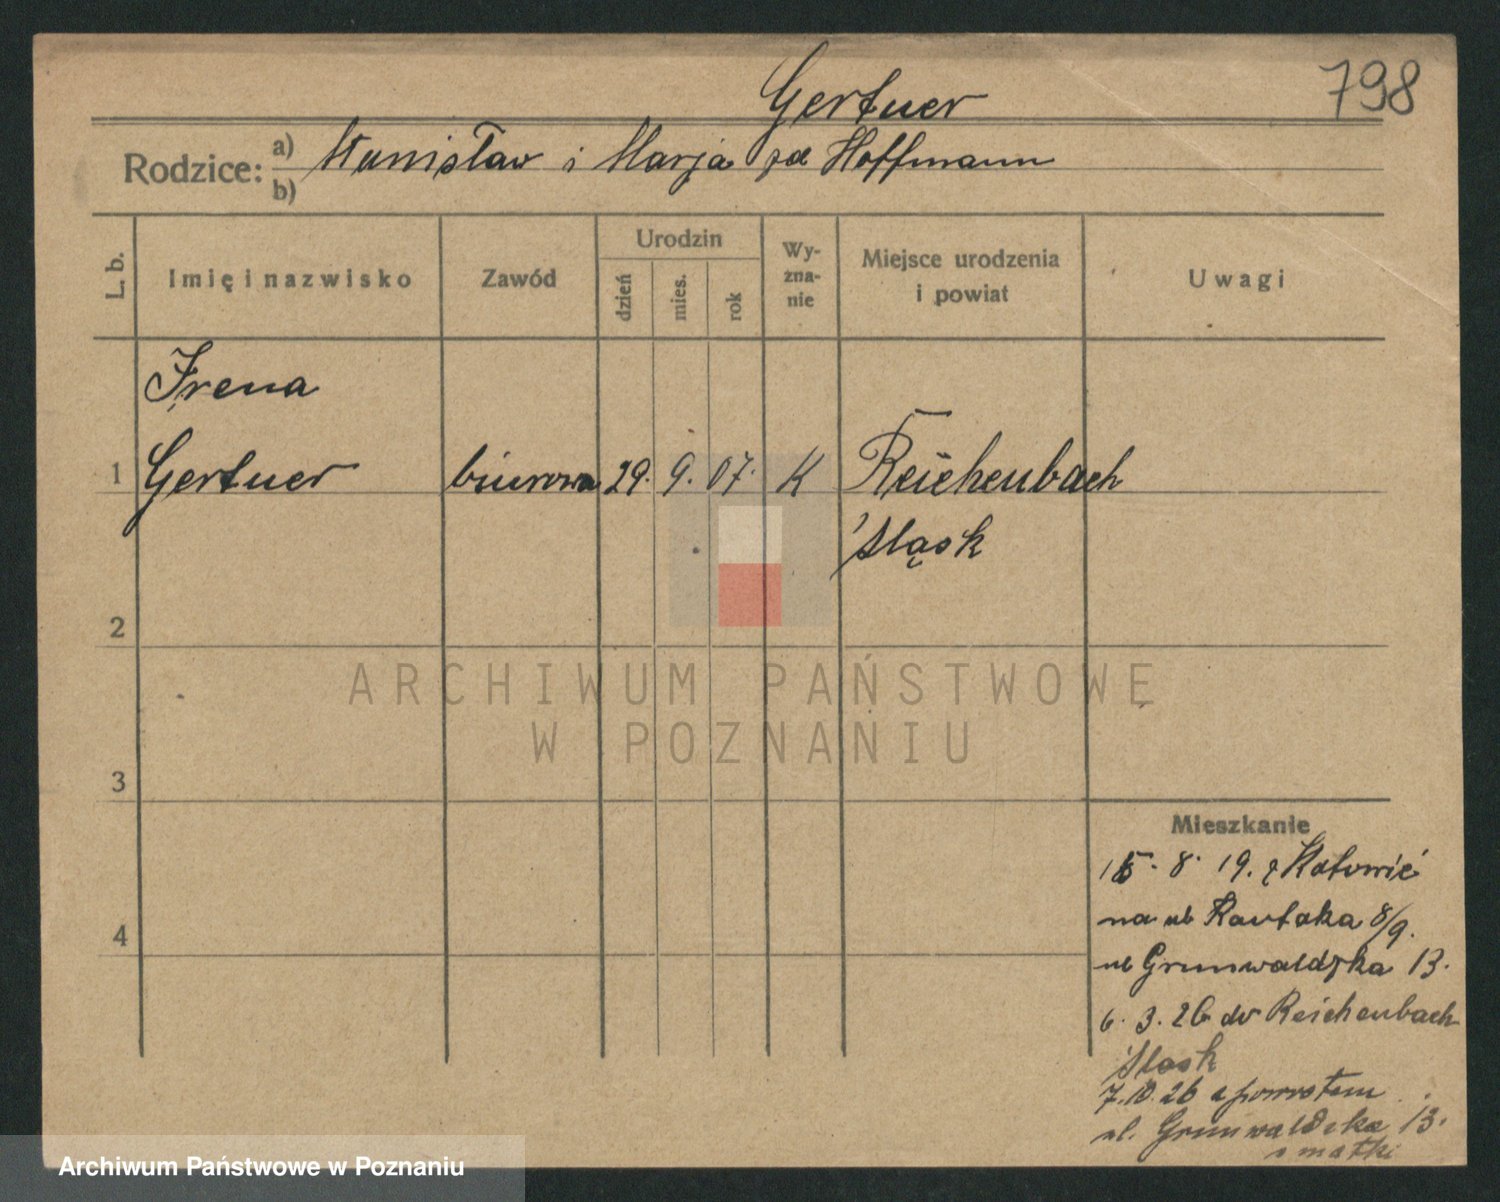 798
Gertner
Rodzice: a) Stanisław i Marja zd Hoffmann
b)
L. b. Imię i nazwisko Zawód Urodzin dzień mies. rok Wy-zna-nie Miejsce urodzenia i powiat Uwagi
Irena
1 Gertner biurowa 29. 9. 07. K Reichenbach
Śląsk
2
ARCHIWUM PAŃSTWOWE
W POZNANIU
3
Mieszkanie
8. 19. z Katowic
na ul 8/9.
4
ul Grunwaldzka 13.
6. 3. 26 do Reichenbach
Śląsk
7.10.26 z powrotem
ul. Grunwaldzka 13.
matki
Archiwum Państwowe w Poznaniu